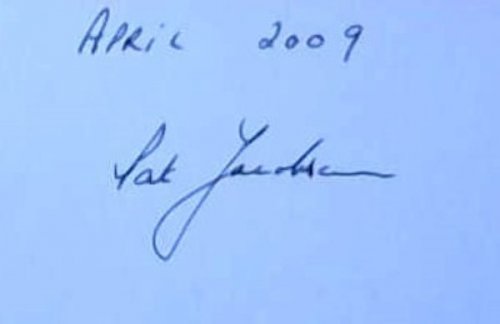 APRIL 2009
Pat Jacobsen